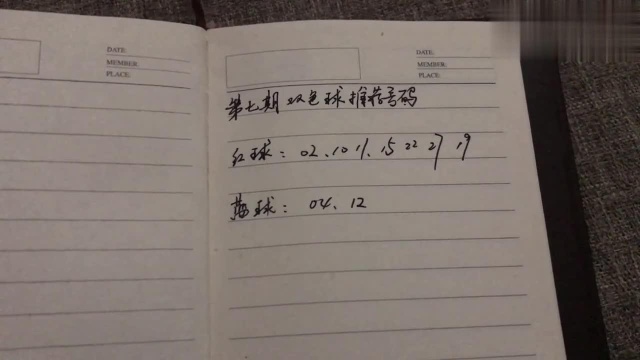 DATE:
MEMBER:
PLACE:
DATE:
MEMBER:
PLACE:
第七期双色球推荐号码
红球：02、10 11、15 22 27 19
蓝球：04、12